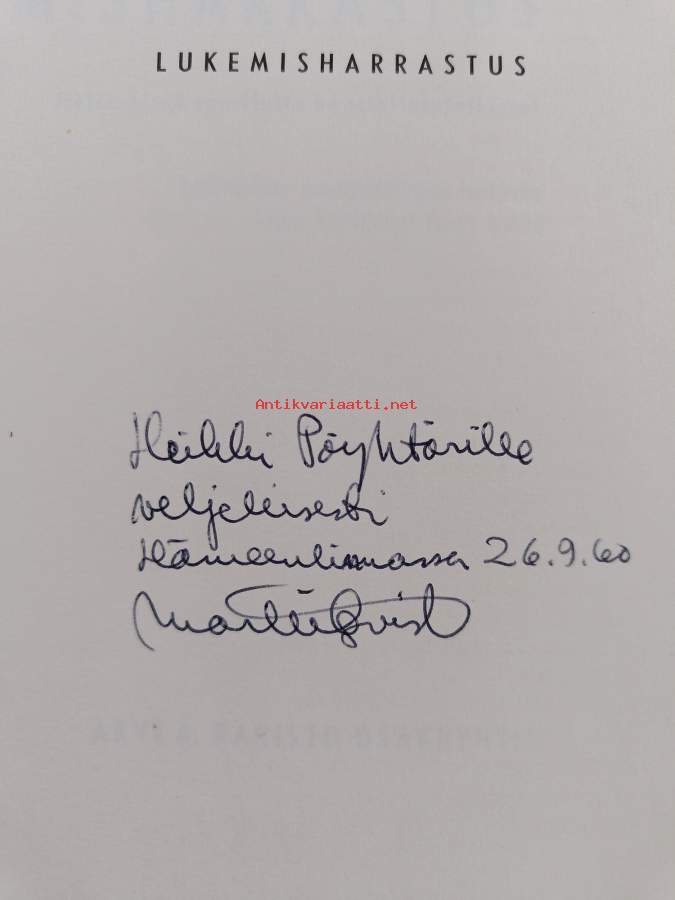 LUKEMISHARRASTUS
Antikvariaatti.net
Heikki Pöyhtärille
veljellisesti
Hämeenlinnassa 26.9.60
Martti Qvist